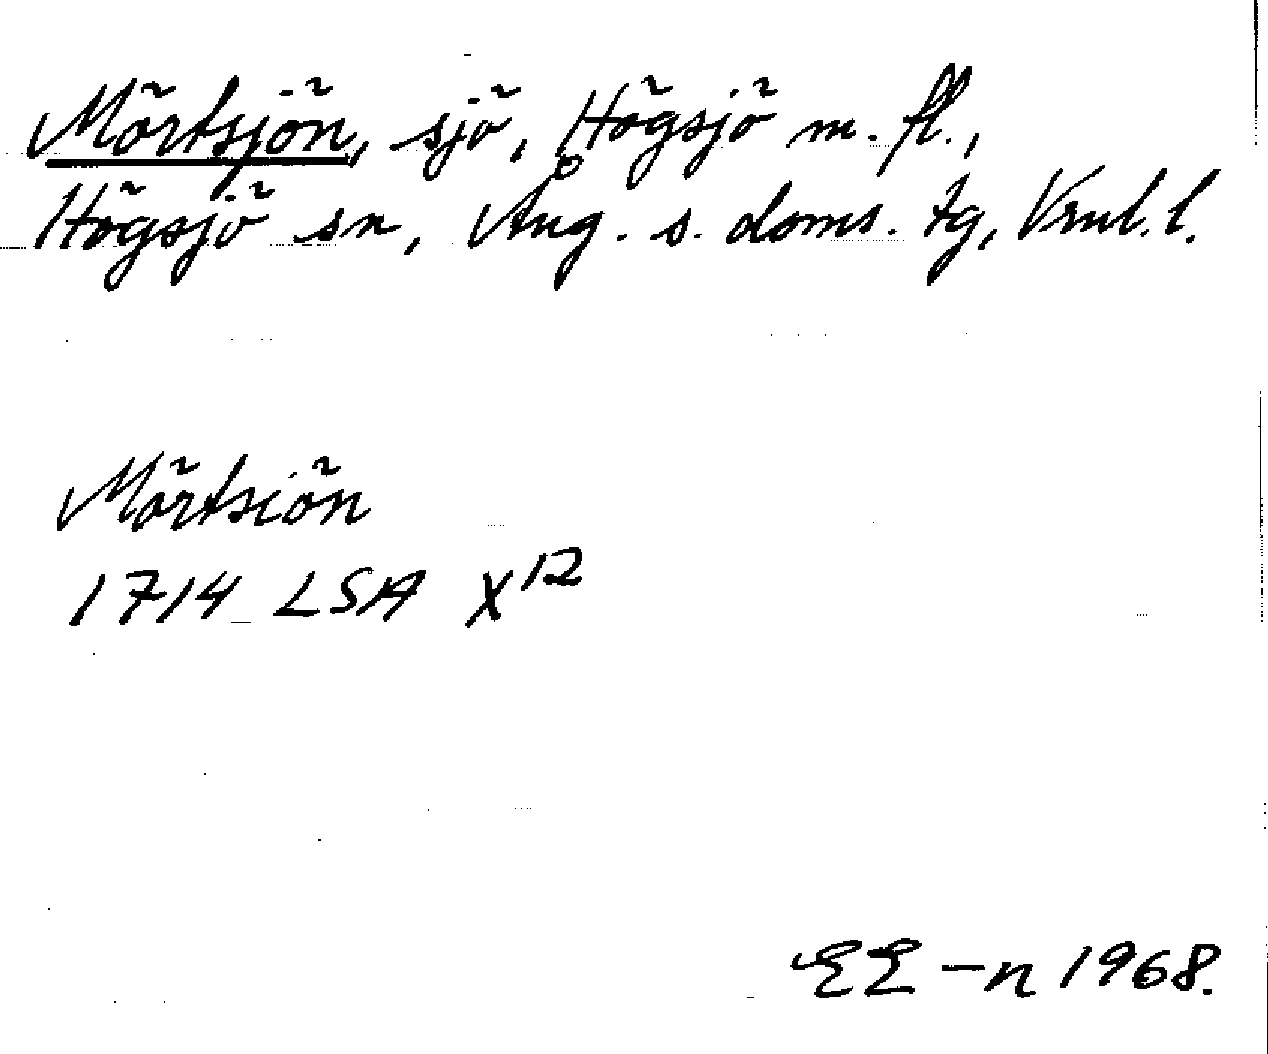 Mörtsjön, sjö, Högsjö m. fl.,
Högsjö sn, Ång. s. doms. tg, Vrnl. l.
Mörtsiön
1714 LSA X12
EE-n 1968.